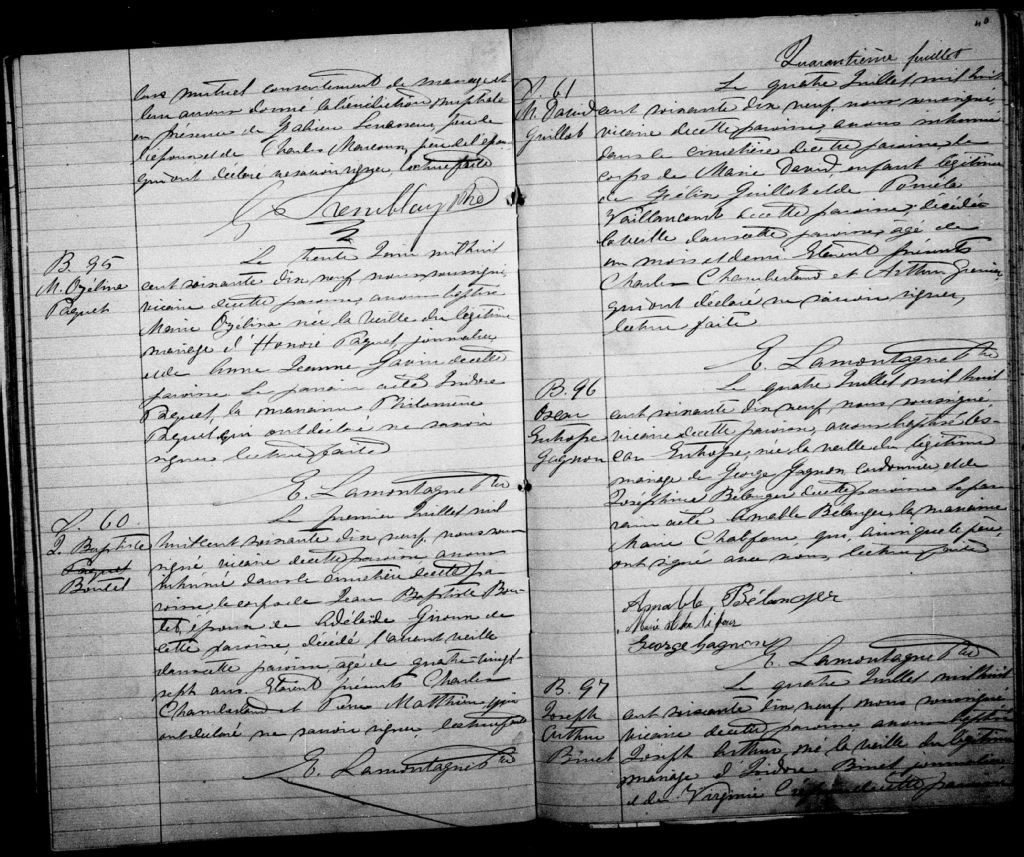 leur mutuel consentement de mariage et
leur avons donné la bénédiction nuptiale
en présence de Levasseur, père de
l'épouse et de Charles Marcoux, père de l'époux
qui ont déclaré ne savoir signer, lecture faite
Tremblay Ptre
B. 95
M. Ozélina
Paquet
Le trente Juin mil huit
cent soixante dix neuf, nous soussigné,
vicaire de cette paroisse, avons baptisé
Marie Ozélina née la veille du légitime
mariage d'Honoré Paquet, journalier,
et de Anne Jeanne de cette
paroisse. Le parrain a été Isidore
Paquet, la marraine Philomène
Paquet, qui ont déclaré ne savoir
signer, lecture faite
E. Lamontagne Ptre
S. 60
J. Baptiste
Paquet
Boutet
Le premier Juillet mil
huit cent soixante dix neuf, nous sous
signé vicaire de cette paroisse, avons
inhumé dans le cimetière de cette pa
roisse, le corps de Jean Baptiste Bou
tet, époux de Adélaïde Giroux de
cette paroisse, décédé l'avant veille
dans cette paroisse, agé de quatre-vingt
sept ans. Etaient présents Charles
Chamberland et Pierre Matthieu, qui
ont déclaré ne savoir signer, lecture faite
E. Lamontagne Ptre
40
Quarantième feuillet
S. 61
M. David
Guillot
Le quatre Juillet mil huit
cent soixante dix neuf, nous soussigné,
vicaire de cette paroisse, avons inhumé
dans le cimetière de cette paroisse, le
corps de Marie David, enfant légitime
de Guillot et de Pamela
Vaillancourt de cette paroisse, décédée
la veille dans cette paroisse, agé de
un mois et demi. Etaient présents
Charles Chamberland et Arthur Grenier,
qui ont déclaré ne savoir signer,
lecture faite
E. Lamontagne Ptre
B. 96
Oscar
Eutrope
Gagnon
Le quatre Juillet mil huit
cent soixante dix neuf, nous soussigné
vicaire de cette paroisse, avons baptisé Os-
car Eutrope, né la veille du légitime
mariage de George Gagnon cordonnier et de
Joséphine Bélanger de cette paroisse. Le par
rain a été Amable Bélanger, la marraine
Marie Chalifour, qui, ainsi que le père,
ont signé avec nous, lecture faite
Amable Bélanger
Marie Chalifour
George Gagnon
E. Lamontagne Ptre
B. 97
Joseph
Arthur
Binet
Le quatre Juillet mil huit
cent soixante dix neuf, nous soussigné
vicaire de cette paroisse, avons baptisé
Joseph Arthur, né la veille du légitime
mariage d'Isidore Binet journalier
et de Virginie de cette paroisse